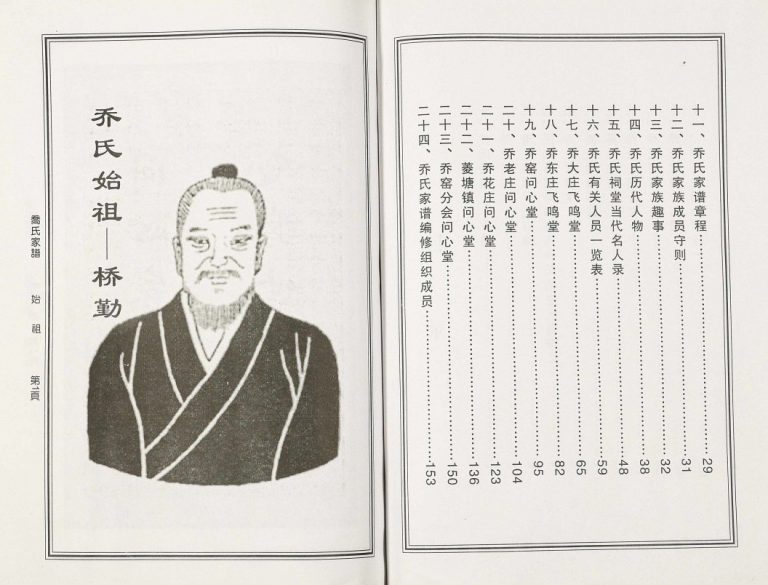 十一、乔氏家谱章程……29
十二、乔氏家族成员守则……31
十三、乔氏家族趣事……32
十四、乔氏历代人物……38
十五、乔氏祠堂当代名人录……48
十六、乔氏有关人员一览表……59
十七、乔大庄飞鸣堂……65
十八、乔东庄飞鸣堂……82
十九、乔窑问心堂……95
二十、乔老庄问心堂……104
二十一、乔花庄问心堂……123
二十二、菱塘镇问心堂……136
二十三、乔窑分会问心堂……150
二十四、乔氏家谱编修组织成员……153
乔氏始祖—桥勤
喬氏家譜 始祖 第1頁